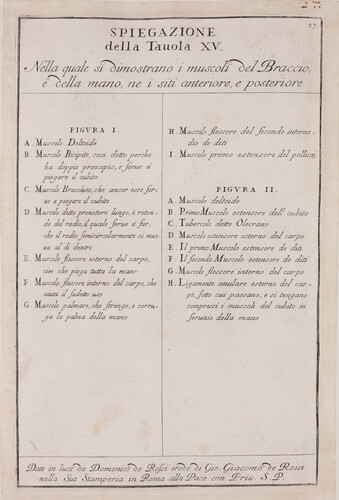 27
SPIEGAZIONE
della Tauola XV.
Nella quale si dimostrano i muscoli del Braccio,
e della mano, ne i siti anteriore, e posteriore
FIGVRA I.
A. Muscolo Deltoide
B. Muscolo Bicipite, cosi detto perche
ha doppio principio, e serue à
piegare il cubito
C. Muscolo Bracchieo, che ancor esso ser-
ue a piegare il cubito
D. Muscolo detto pronatore lungo, ò roton-
do del radio, il quale serue à far,
che il radio semicircolarmente si mu-
ua al di dentro
E. Muscolo flessore esterno del carpo,
cioe che piega tutta la mano
F. Muscolo flessore interno del carpo, che
aiuta il sudetto uso
G. Muscolo palmare, che stringe, e corru-
ga la palma della mano
H. Muscolo flessore del secondo interno-
dio de diti
I. Muscolo primo estensore del pollice
FIGVRA II.
A. Muscolo deltoide
B. Primo Muscolo estensore dell cubito
C. Tubercolo detto Olecrano
D. Muscolo estensore esterno del carpo
E. Il primo Muscolo estensore de diti
F. Il secondo Muscolo estensore de diti
G. Muscolo flessore interno del carpo
H. Ligamento anulare esterno del car-
po, sotto cui passano, e si tengono
compressi i muscoli del cubito in
seruizio della mano
Date in luce da Domenico de Rossi erede di Gio. Giacomo de Rossi
nella Sua Stamperia in Roma alla Pace con Priu. S. P.